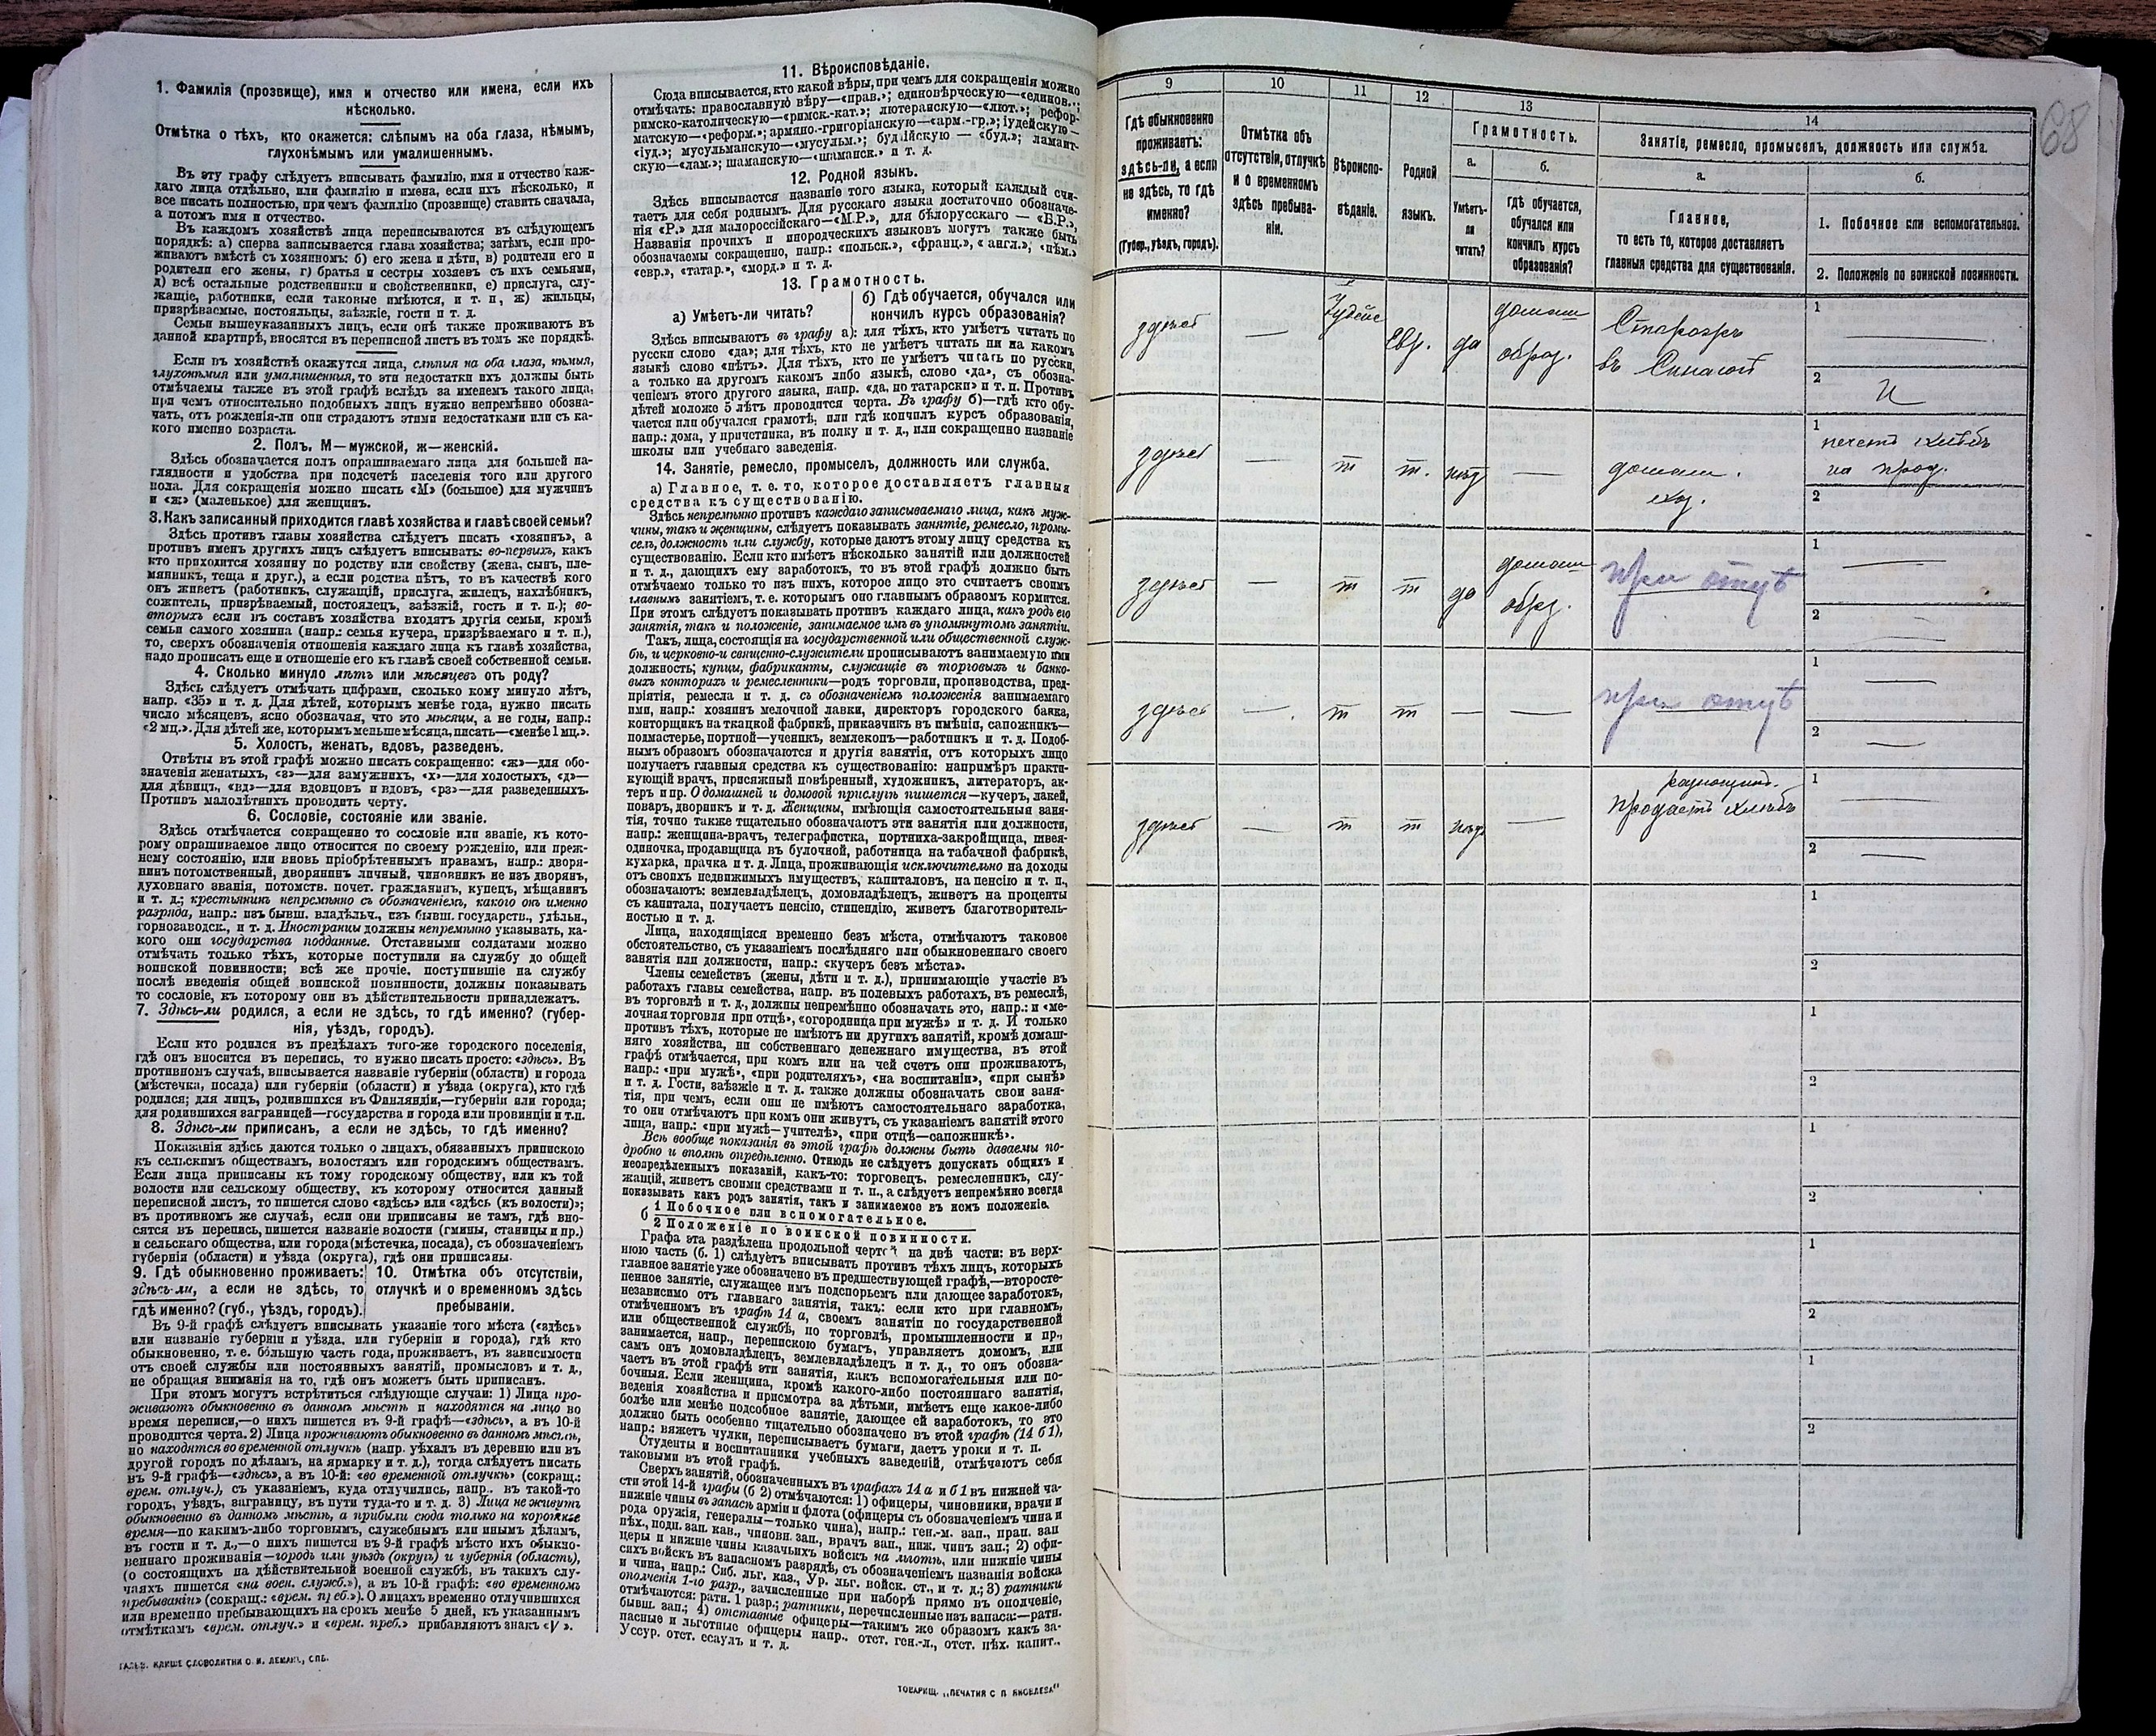 1. Фамилія (прозвище), имя и отчество или имена, если ихъ
нѣсколько.
Отмѣтка о тѣхъ, кто окажется: слѣпымъ на оба глаза, нѣмымъ,
глухонѣмымъ или умалишеннымъ.
Въ эту графу слѣдуетъ вписывать фамилію, имя и отчество каж-
даго лица отдѣльно, или фамилію и имена, если ихъ нѣсколько, и
все писать полностью, при чемъ фамилію (прозвище) ставить сначала,
а потомъ имя и отчество.
Въ каждомъ хозяйствѣ лица переписываются въ слѣдующемъ
порядкѣ: а) сперва записывается глава хозяйства; затѣмъ, если про-
живаютъ вмѣстѣ съ хозяиномъ: б) его жена и дѣти, в) родители его и
родители его жены, г) братья и сестры хозяевъ съ ихъ семьями,
д) всѣ остальные родственники и свойственники, е) прислуга, слу-
жащіе, работники, если таковые имѣются, и т. п, ж) жильцы,
призрѣваемые, постояльцы, заѣзжіе, гости и т. д.
Семьи вышеуказанныхъ лицъ, если онѣ также проживаютъ въ
данной квартирѣ, вносятся въ переписной листъ въ томъ же порядкѣ.
Если въ хозяйствѣ окажутся лица, слѣпыя на оба глаза, нѣмыя,
глухонѣмыя или умалишенныя, то эти недостатки ихъ должны быть
отмѣчаемы также въ этой графѣ вслѣдъ за именемъ такого лица,
при чемъ относительно подобныхъ лицъ нужно непремѣнно обозна-
чать, отъ рожденія-ли они страдаютъ этими недостатками или съ ка-
кого именно возраста.
2. Полъ, М—мужской, ж—женскій.
Здѣсь обозначается полъ опрашиваемаго лица для большей на-
глядности и удобства при подсчетѣ населенія того или другого
пола. Для сокращенія можно писать «М» (большое) для мужчинъ
и «ж» (маленькое) для женщинъ.
3. Какъ записанный приходится главѣ хозяйства и главѣ своей семьи?
Здѣсь противъ главы хозяйства слѣдуетъ писать «хозяинъ», а
противъ именъ другихъ лицъ слѣдуетъ вписывать: во-первыхъ, какъ
кто приходится хозяину по родству или свойству (жена, сынъ, пле-
мянникъ, теща и друг.), а если родства нѣтъ, то въ качествѣ кого
онъ живетъ (работникъ, служащій, прислуга, жилецъ, нахлѣбникъ,
сожитель, призрѣваемый, постоялецъ, заѣзжій, гость и т. п.); во-
вторыхъ если въ составъ хозяйства входятъ другія семьи, кромѣ
семьи самого хозяина (напр.: семья кучера, призрѣваемаго и т. п.),
то, сверхъ обозначенія отношенія каждаго лица къ главѣ хозяйства,
надо прописать еще и отношеніе его къ главѣ своей собственной семьи.
4. Сколько минуло лѣтъ или мѣсяцевъ отъ роду?
Здѣсь слѣдуетъ отмѣчать цифрами, сколько кому минуло лѣтъ,
напр. «35» и т. д. Для дѣтей, которымъ менѣе года, нужно писать
число мѣсяцевъ, ясно обозначая, что это мѣсяцы, а не годы, напр.:
«2 мц.». Для дѣтей же, которымъ меньше мѣсяца, писать—«менѣе 1 мц.».
5. Холостъ, женатъ, вдовъ, разведенъ.
Отвѣты въ этой графѣ можно писать сокращенно: «ж»—для обо-
значенія женатыхъ, «з»—для замужнихъ, «х»—для холостыхъ, «д»—
для дѣвицъ, «вд»—для вдовцовъ и вдовъ, «рз»—для разведенныхъ.
Противъ малолѣтнихъ проводить черту.
6. Сословіе, состояніе или званіе.
Здѣсь отмѣчается сокращенно то сословіе или званіе, къ кото-
рому опрашиваемое лицо относится по своему рожденію, или преж-
нему состоянію, или вновь пріобрѣтеннымъ правамъ, напр.: дворя-
нинъ потомственный, дворянинъ личный, чиновникъ не изъ дворянъ,
духовнаго званія, потомств. почет. гражданинъ, купецъ, мѣщанинъ
и т. д.; крестьянинъ непремѣнно съ обозначеніемъ, какого онъ именно
разряда, напр.: изъ бывш. владѣльч., изъ бывш. государств., удѣльн.,
горнозаводск., и т. д. Иностранцы должны непремѣнно указывать, ка-
кого они государства подданные. Отставными солдатами можно
отмѣчать только тѣхъ, которые поступили на службу до общей
воинской повинности; всѣ же прочіе, поступившіе на службу
послѣ введенія общей воинской повинности, должны показывать
то сословіе, къ которому они въ дѣйствительности принадлежатъ.
7. Здѣсь-ли родился, а если не здѣсь, то гдѣ именно? (губер-
нія, уѣздъ, городъ).
Если кто родился въ предѣлахъ того-же городского поселенія,
гдѣ онъ вносится въ перепись, то нужно писать просто: «здѣсь». Въ
противномъ случаѣ, вписывается названіе губерніи (области) и города
(мѣстечка, посада) или губерніи (области) и уѣзда (округа), кто гдѣ
родился; для лицъ, родившихся въ Финляндіи,—губерніи или города;
для родившихся заграницей—государства и города или провинціи и т.п.
8. Здѣсь-ли приписанъ, а если не здѣсь, то гдѣ именно?
Показанія здѣсь даются только о лицахъ, обязанныхъ припискою
къ сельскимъ обществамъ, волостямъ или городскимъ обществамъ.
Если лица приписаны къ тому городскому обществу, или къ той
волости или сельскому обществу, къ которому относится данный
переписной листъ, то пишется слово «здѣсь» или «здѣсь (къ волости)»;
въ противномъ же случаѣ, если они приписаны не тамъ, гдѣ вно-
сятся въ перепись, пишется названіе волости (гмины, станицы и пр.)
и сельскаго общества, или города (мѣстечка, посада), съ обозначеніемъ
губерніи (области) и уѣзда (округа), гдѣ они приписаны.
9. Гдѣ обыкновенно проживаетъ:
здѣсь-ли, а если не здѣсь, то
гдѣ именно? (губ., уѣздъ, городъ).
10. Отмѣтка объ отсутствіи,
отлучкѣ и о временномъ здѣсь
пребываніи.
Въ 9-й графѣ слѣдуетъ вписывать указаніе того мѣста («здѣсь»
или названіе губерніи и уѣзда, или губерніи и города), гдѣ кто
обыкновенно, т. е. бо́льшую часть года, проживаетъ, въ зависимости
отъ своей службы или постоянныхъ занятій, промысловъ и т. д.,
не обращая вниманія на то, гдѣ онъ можетъ быть приписанъ.
При этомъ могутъ встрѣтиться слѣдующіе случаи: 1) Лица про-
живаютъ обыкновенно въ данномъ мѣстѣ и находятся на лицо во
время переписи,—о нихъ пишется въ 9-й графѣ—«здѣсь», а въ 10-й
проводится черта. 2) Лица проживаютъ обыкновенно въ данномъ мѣстѣ,
но находятся во временной отлучкѣ (напр. уѣхалъ въ деревню или въ
другой городъ по дѣламъ, на ярмарку и т. д.), тогда слѣдуетъ писать
въ 9-й графѣ—«здѣсь», а въ 10-й: «во временной отлучкѣ» (сокращ.:
врем. отлуч.), съ указаніемъ, куда отлучились, напр.. въ такой-то
городъ, уѣздъ, заграницу, въ пути туда-то и т. д. 3) Лица не живутъ
обыкновенно въ данномъ мѣстѣ, а прибыли сюда только на короткое
время—по какимъ-либо торговымъ, служебнымъ или инымъ дѣламъ,
въ гости и т. д.,—о нихъ пишется въ 9-й графѣ мѣсто ихъ обыкно-
веннаго проживанія—городъ или уѣздъ (округъ) и губернія (область),
(о состоящихъ на дѣйствительной военной службѣ, въ такихъ слу-
чаяхъ пишется «на воен. служб.»), а въ 10-й графѣ: «во временномъ
пребываніи» (сокращ.: «врем. преб.»). О лицахъ временно отлучившихся
или временно пребывающихъ на срокъ менѣе 5 дней, къ указаннымъ
отмѣткамъ «врем. отлуч.» и «врем. преб.» прибавляютъ знакъ «V».
11. Вѣроисповѣданіе.
Сюда вписывается, кто какой вѣры, при чемъ для сокращенія можно
отмѣчать: православную вѣру—«прав.»; единовѣрческую—«единов.»;
римско-католическую—«римск.-кат.»; лютеранскую—«лют.»; рефор-
матскую—«реформ.»; армяно-григоріанскую—«арм.-гр.»; іудейскую—
«іуд.»; мусульманскую—«мусульм.»; буддійскую — «буд.»; ламаит-
скую—«лам.»; шаманскую—«шаманск.» и т. д.
12. Родной языкъ.
Здѣсь вписывается названіе того языка, который каждый счи-
таетъ для себя роднымъ. Для русскаго языка достаточно обозначе-
нія «Р.» для малороссійскаго—«М.Р.», для бѣлорусскаго — «Б.Р.»,
Названія прочихъ и инородческихъ языковъ могутъ также быть
обозначаемы сокращенно, напр.: «польск.», «франц.», «англ.», «нѣм.»
«евр.», «татар.», «морд.» и т. д.
13. Грамотность.
а) Умѣетъ-ли читать?
б) Гдѣ обучается, обучался или
кончилъ курсъ образованія?
Здѣсь вписываютъ въ графу а): для тѣхъ, кто умѣетъ читать по
русски слово «да»; для тѣхъ, кто не умѣетъ читать ни на какомъ
языкѣ слово «нѣтъ». Для тѣхъ, кто не умѣетъ читать по русски,
а только на другомъ какомъ либо языкѣ, слово «да», съ обозна-
ченіемъ этого другого языка, напр. «да, по татарски» и т. п. Противъ
дѣтей моложе 5 лѣтъ проводится черта. Въ графу б)—гдѣ кто обу-
чается или обучался грамотѣ, или гдѣ кончилъ курсъ образованія,
напр.: дома, у причетника, въ полку и т. д., или сокращенно названіе
школы или учебнаго заведенія.
14. Занятіе, ремесло, промыселъ, должность или служба.
а) Главное, т. е. то, которое доставляетъ главныя
средства къ существованію.
Здѣсь непремѣнно противъ каждаго записываемаго лица, какъ муж-
чины, такъ и женщины, слѣдуетъ показывать занятіе, ремесло, промы-
селъ, должность или службу, которые даютъ этому лицу средства къ
существованію. Если кто имѣетъ нѣсколько занятій или должностей
и т. д., дающихъ ему заработокъ, то въ этой графѣ должно быть
отмѣчаемо только то изъ нихъ, которое лицо это считаетъ своимъ
главнымъ занятіемъ, т. е. которымъ оно главнымъ образомъ кормится.
При этомъ слѣдуетъ показывать противъ каждаго лица, какъ родъ его
занятія, такъ и положеніе, занимаемое имъ въ упомянутомъ занятіи.
Такъ, лица, состоящія на государственной или общественной служ-
бѣ, и церковно-и священно-служители прописываютъ занимаемую ими
должность; купцы, фабриканты, служащіе въ торговыхъ и банко-
выхъ конторахъ и ремесленники—родъ торговли, производства, пред-
пріятія, ремесла и т. д. съ обозначеніемъ положенія занимаемаго
ими, напр.: хозяинъ мелочной лавки, директоръ городского банка,
конторщикъ на ткацкой фабрикѣ, приказчикъ въ имѣніи, сапожникъ—
подмастерье, портной—ученикъ, землекопъ—работникъ и т. д. Подоб-
нымъ образомъ обозначаются и другія занятія, отъ которыхъ лицо
получаетъ главныя средства къ существованію: напримѣръ практи-
кующій врачъ, присяжный повѣренный, художникъ, литераторъ, ак-
теръ и пр. О домашней и домовой прислугѣ пишется—кучеръ, лакей,
поваръ, дворникъ и т. д. Женщины, имѣющія самостоятельныя заня-
тія, точно также тщательно обозначаютъ эти занятія или должности,
напр.: женщина-врачъ, телеграфистка, портниха-закройщица, швея-
одиночка, продавщица въ булочной, работница на табачной фабрикѣ,
кухарка, прачка и т. д. Лица, проживающія исключительно на доходы
отъ своихъ недвижимыхъ имуществъ, капиталовъ, на пенсію и т. п.,
обозначаютъ: землевладѣлецъ, домовладѣлецъ, живетъ на проценты
съ капитала, получаетъ пенсію, стипендію, живетъ благотворитель-
ностью и т. д.
Лица, находящіяся временно безъ мѣста, отмѣчаютъ таковое
обстоятельство, съ указаніемъ послѣдняго или обыкновеннаго своего
занятія или должности, напр.: «кучеръ безъ мѣста».
Члены семействъ (жены, дѣти и т. д.), принимающіе участіе въ
работахъ главы семейства, напр. въ полевыхъ работахъ, въ ремеслѣ,
въ торговлѣ и т. д., должны непремѣнно обозначать это, напр.: и «ме-
лочная торговля при отцѣ», «огородница при мужѣ» и т. д. И только
противъ тѣхъ, которые не имѣютъ ни другихъ занятій, кромѣ домаш-
няго хозяйства, ни собственнаго денежнаго имущества, въ этой
графѣ отмѣчается, при комъ или на чей счетъ они проживаютъ,
напр.: «при мужѣ», «при родителяхъ», «на воспитаніи», «при сынѣ»
и т. д. Гости, заѣзжіе и т. д. также должны обозначать свои заня-
тія, при чемъ, если они не имѣютъ самостоятельнаго заработка,
то они отмѣчаютъ при комъ они живутъ, съ указаніемъ занятій этого
лица, напр.: «при мужѣ—учителѣ», «при отцѣ—сапожникѣ».
Всѣ вообще показанія въ этой графѣ должны быть даваемы по-
дробно и вполнѣ опредѣленно. Отнюдь не слѣдуетъ допускать общихъ и
неопредѣленныхъ показаній, какъ-то: торговецъ, ремесленникъ, слу-
жащій, живетъ своими средствами и т. п., а слѣдуетъ непремѣнно всегда
показывать какъ родъ занятія, такъ и занимаемое въ немъ положеніе.
б
1 Побочное или вспомогательное.
2 Положеніе по воинской повинности.
Графа эта раздѣлена продольной чертой на двѣ части: въ верх-
нюю часть (б. 1) слѣдуетъ вписывать противъ тѣхъ лицъ, которыхъ
главное занятіе уже обозначено въ предшествующей графѣ,—второсте-
пенное занятіе, служащее имъ подспорьемъ или дающее заработокъ,
независимо отъ главнаго занятія, такъ: если кто при главномъ,
отмѣченномъ въ графѣ 14 а, своемъ занятіи по государственной
или общественной службѣ, по торговлѣ, промышленности и пр.,
занимается, напр., перепискою бумагъ, управляетъ домомъ, или
самъ онъ домовладѣлецъ, землевладѣлецъ и т. д., то онъ обозна-
чаетъ въ этой графѣ эти занятія, какъ вспомогательныя или по-
бочныя. Если женщина, кромѣ какого-либо постояннаго занятія,
веденія хозяйства и присмотра за дѣтьми, имѣетъ еще какое-либо
болѣе или менѣе подсобное занятіе, дающее ей заработокъ, то это
должно быть особенно тщательно обозначено въ этой графѣ (14 б 1),
напр.: вяжетъ чулки, переписываетъ бумаги, даетъ уроки и т. п.
Студенты и воспитанники учебныхъ заведеній, отмѣчаютъ себя
таковыми въ этой графѣ.
Сверхъ занятій, обозначенныхъ въ графахъ 14 а и б 1 въ нижней ча-
сти этой 14-й графы (б 2) отмѣчаются: 1) офицеры, чиновники, врачи и
нижніе чины въ запасѣ арміи и флота (офицеры съ обозначеніемъ чина и
рода оружія, генералы—только чина), напр.: ген.-м. зап., прап. зап
пѣх., подп. зап. кав., чиновн. зап., врачъ зап., ниж. чинъ зап.; 2) офи-
церы и нижніе чины казачьихъ войскъ на льготѣ, или нижніе чины
сихъ войскъ въ запасномъ разрядѣ, съ обозначеніемъ названія войска
и чина, напр.: Сиб. льг. каз., Ур. льг. войск. ст., и т. д.; 3) ратники
ополченія 1-го разр., зачисленные при наборѣ прямо въ ополченіе,
отмѣчаются: ратн. 1 разр.; ратники, перечисленные изъ запаса:—ратн.
бывш. зап.; 4) отставные офицеры—такимъ же образомъ какъ за-
пасные и льготные офицеры напр.. отст. ген.-л., отст. пѣх. капит.,
Уссур. отст. есаулъ и т. д.
ГАЛЬВ. КЛИШЕ СЛОВОЛИТНИ О. И. ЛЕМАНЪ, СПБ.
ТОВАРИЩ. „ПЕЧАТНЯ С П ЯКОВЛЕВА"
68
9 10 11 12 13 14
Гдѣ обыкновенно
проживаетъ:
здѣсь-ли, а если
не здѣсь, то гдѣ
именно?
(Губер., уѣздъ, городъ).
Отмѣтка объ
отсутствіи, отлучкѣ
и о временномъ
здѣсь пребыва-
ніи.
Вѣроиспо-
вѣданіе.
Родной
языкъ.
Грамотность.
а.
Умѣетъ-
ли
читать?
б.
Гдѣ обучается,
обучался или
кончилъ курсъ
образованія?
Занятіе, ремесло, промыселъ, должность или служба.
а.
Главное,
то есть то, которое доставляетъ
главныя средства для существованія.
б.
1. Побочное или вспомогательное.
2. Положеніе по воинской повинности.
здѣсь — Іудейс Евр. да домаш
образ.
1 —
2
здѣсь — т т. нѣт — домаш.
хоз.
1 печетъ хлѣбъ
на прод.
2
здѣсь — т т да домаш
обрз.
при отцѣ
1 —
2 —
здѣсь — т т — — при отцѣ
1 —
2 —
здѣсь — т т нѣт —
продаетъ хлѣбъ
1 —
2 —
1
2
1
2
1
2
1
2
1
2